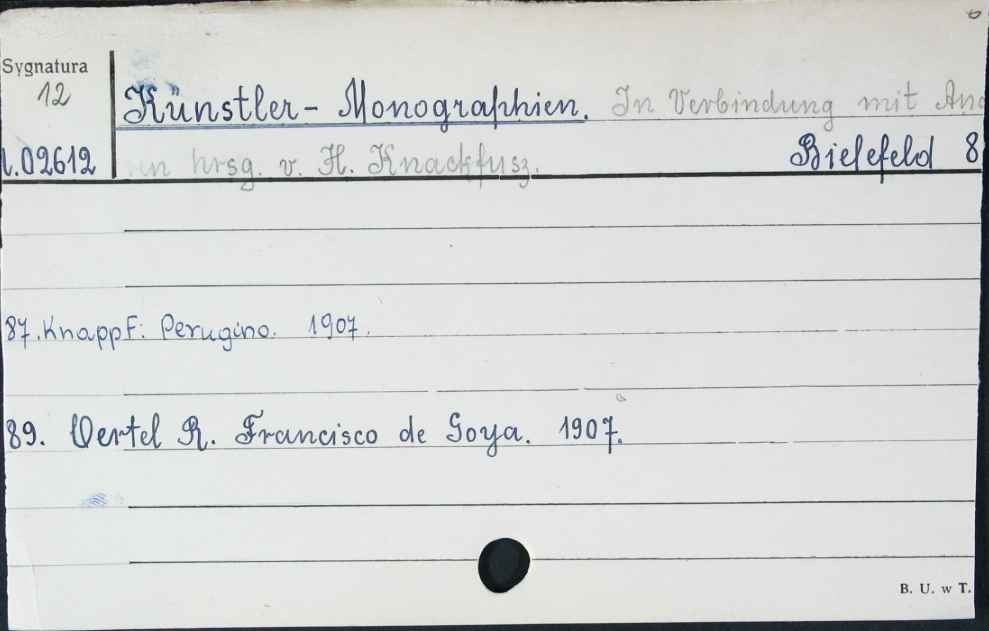 Sygnatura
12
Künstler-Monographien. In Verbindung mit And
02612 hrsg. v. H. Knackfusz. Bielefeld 8
87. Knapp F: Perugino. 1907.
89. Oertel R. Francisco de Goya. 1907.
B. U. w T.